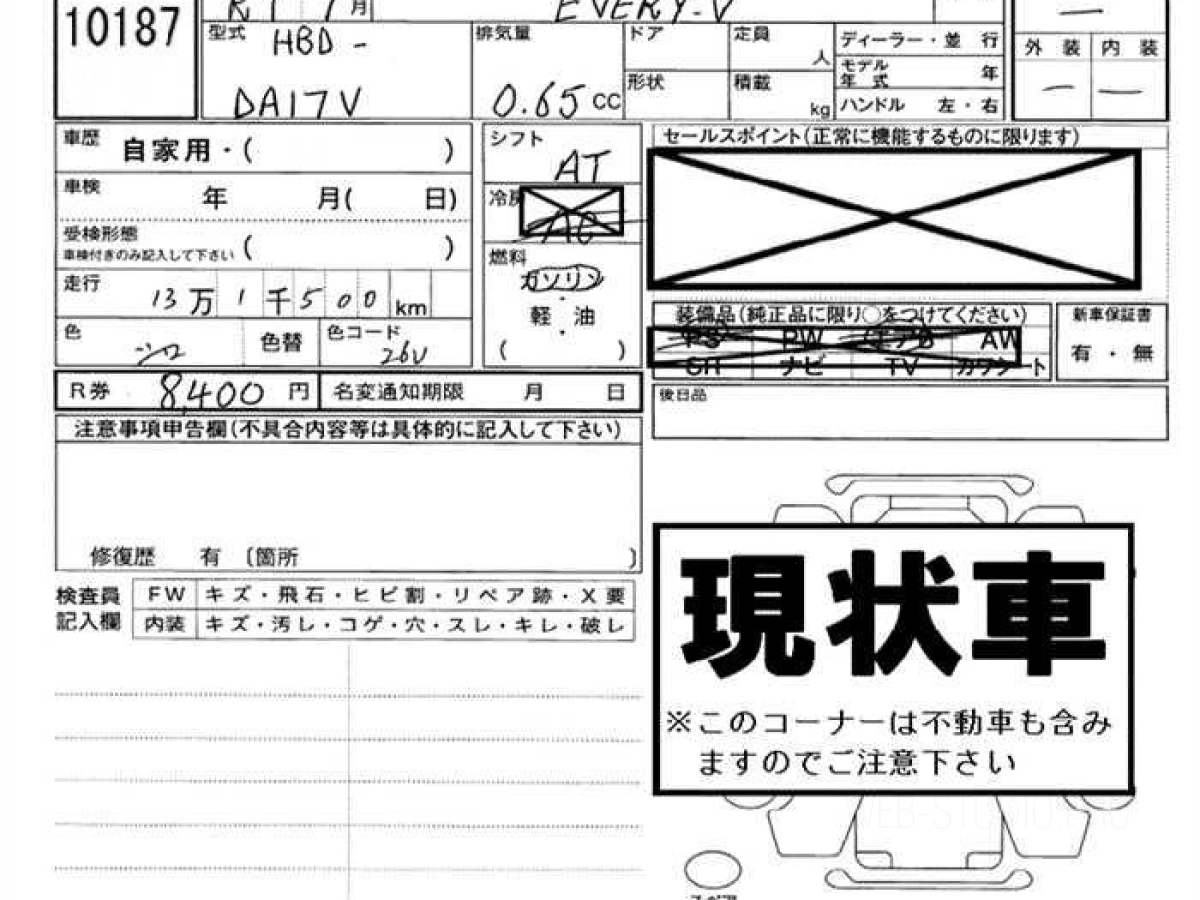 10187
R1 7月
EVERY-V
型式 HBD -
DA17V
排気量
0.65 cc
ドア
形状
定員 人
積載 kg
ディーラー・並 行
モデル年式 年
ハンドル 左・右
外 装 内 装
車歴 自家用・( )
車検 年 月( 日)
受検形態
車検付きのみ記入して下さい ( )
走行 13万1千500km
色 シロ 色替 色コード 26U
シフト
AT
冷房
AC
燃料
ガソリン
・
軽 油
・
( )
セールスポイント(正常に機能するものに限ります)
装備品(純正品に限り○をつけてください)
PS PW エアB AW
SR ナビ TV カワシート
新車保証書
有・無
R券 8,400 円 名変通知期限 月 日
後日品
注意事項申告欄(不具合内容等は具体的に記入して下さい)
修復歴 有 〔箇所 〕
検査員
記入欄
FW キズ・飛石・ヒビ割・リペア跡・X要
内装 キズ・汚レ・コゲ・穴・スレ・キレ・破レ
現状車
※このコーナーは不動車も含み
ますのでご注意下さい